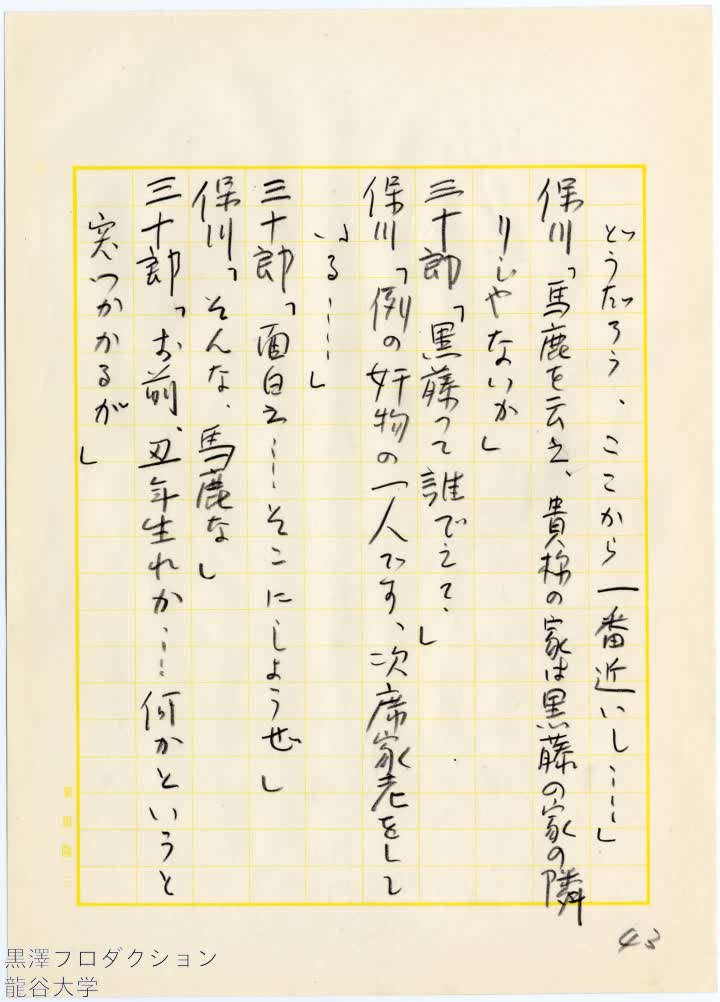 どうだろう、ここから一番近いし……」
保川「馬鹿を云え、貴様の家は黒藤の家の隣
りじやないか」
三十郎「黒藤って誰でえ?」
保川「例の奸物の一人です、次席家老をして
いる……」
三十郎「面白え……そこにしようぜ」
保川「そんな、馬鹿な」
三十郎「お前、丑年生れか……何かというと
突っかかるが」
43
黒澤プロダクション
龍谷大学